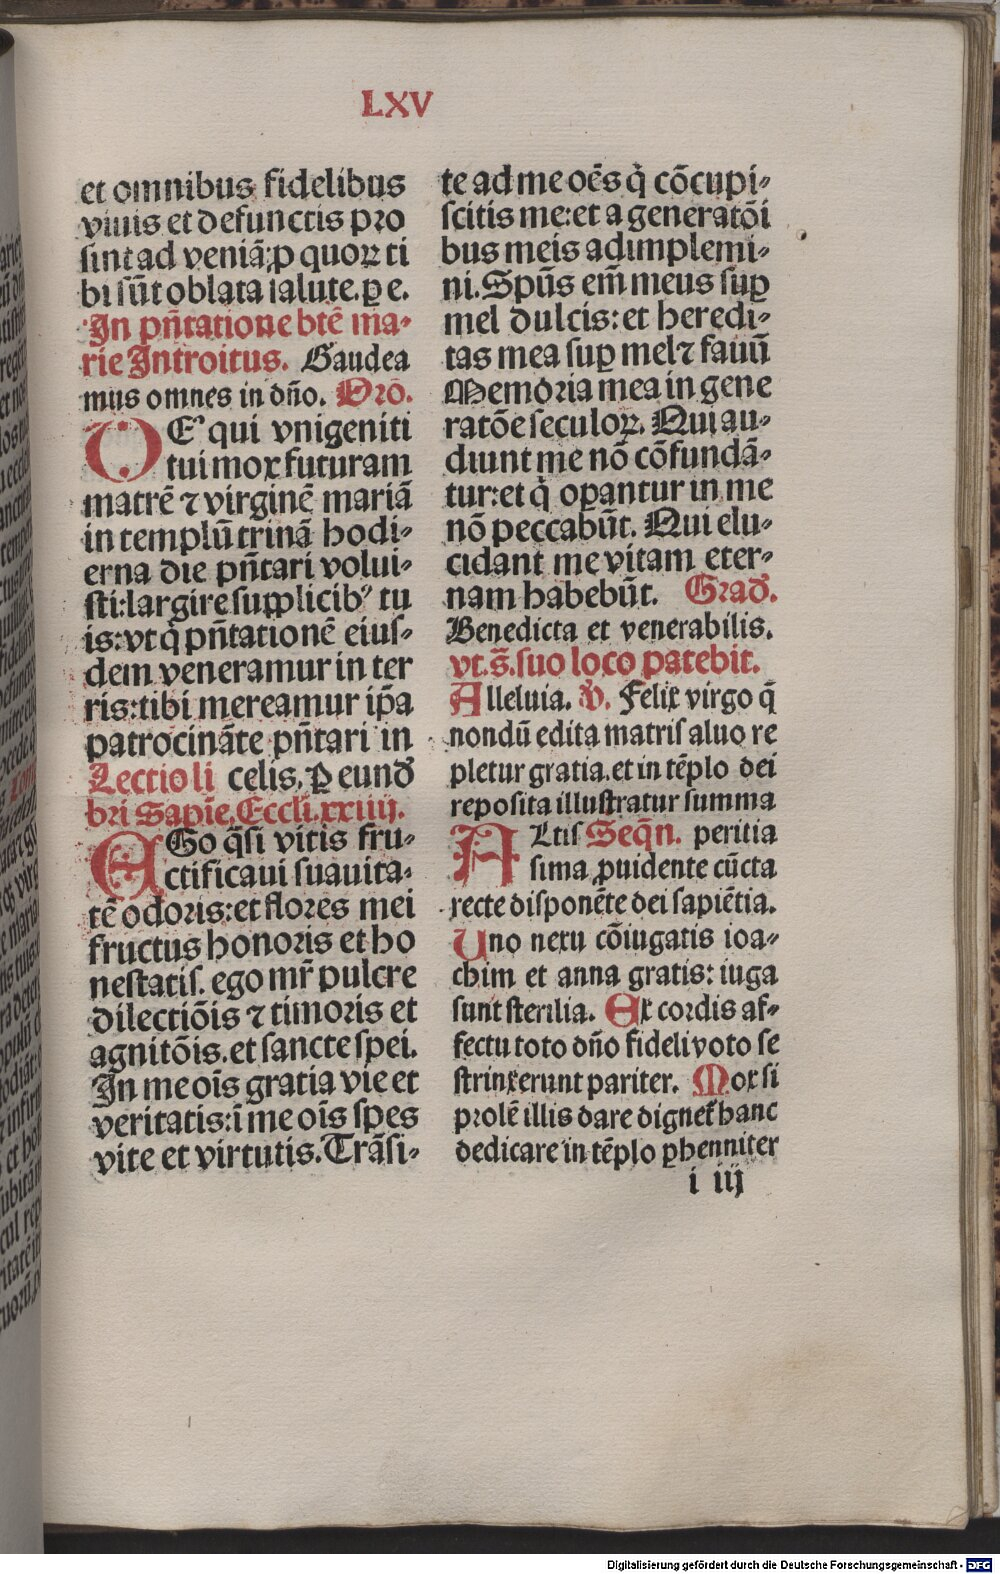 LXV
et omnibus fidelibus
viuis et defunctis pro
sint ad veniã: ꝑ quoꝝ ti
bi sũt oblata salute. ꝑ e.
In pñtatione btẽ ma-
rie Introitus. Gaudea
mus omnes in dño. Orõ.
DEꝰ qui vnigeniti
tui mox futuram
matrẽ ⁊ virginẽ mariã
in templũ trinã hodi-
erna die pñtari volui-
sti: largire supplicibꝰ tu
is: vt q̃ pñtationẽ eius-
dem veneramur in ter
ris: tibi mereamur ip̃a
patrocinãte pñtari in
Lectio li celis. ꝑ eund̃
bri Sapiẽ. Eccli. xxiiij.
EGo q̃si vitis fru-
ctificaui suauita-
tẽ odoris: et flores mei
fructus honoris et ho
nestatis. ego mr̃ pulcre
dilectiõis ⁊ timoris et
agnitõis. et sancte spei.
In me oĩs gratia vie et
veritatis: ĩ me oĩs spes
vite et virtutis. Trãsi-
te ad me oẽs q̇ cõcupi-
scitis me: et a generatõi
bus meis adimplemi-
ni. Spũs em̃ meus suꝑ
mel dulcis: et heredi-
tas mea suꝑ mel ⁊ fauũ
Memoria mea in gene
ratõe seculoꝝ. Qui au-
diunt me nõ cõfundã-
tur: et q̇ oꝑantur in me
nõ peccabũt. Qui elu-
cidant me vitam eter-
nam habebũt. Grad̃.
Benedicta et venerabilis.
vt. s̃. suo loco patebit.
Alleluia. ℣. Felix virgo q̃
nondũ edita matris aluo re
pletur gratia. et in tẽplo dei
reposita illustratur summa
ALtis Seq̃n. peritia
sima ꝓuidente cũcta
recte disponẽte dei sapiẽtia.
Uno nexu cõiugatis ioa-
chim et anna gratis: iuga
sunt sterilia. Ex cordis af-
fectu toto dño fideli voto se
strinxerunt pariter. Mox si
prolẽ illis dare dignet᷑ hanc
dedicare in tẽplo ꝑhenniter
i iij
Digitalisierung gefördert durch die Deutsche Forschungsgemeinschaft - DFG